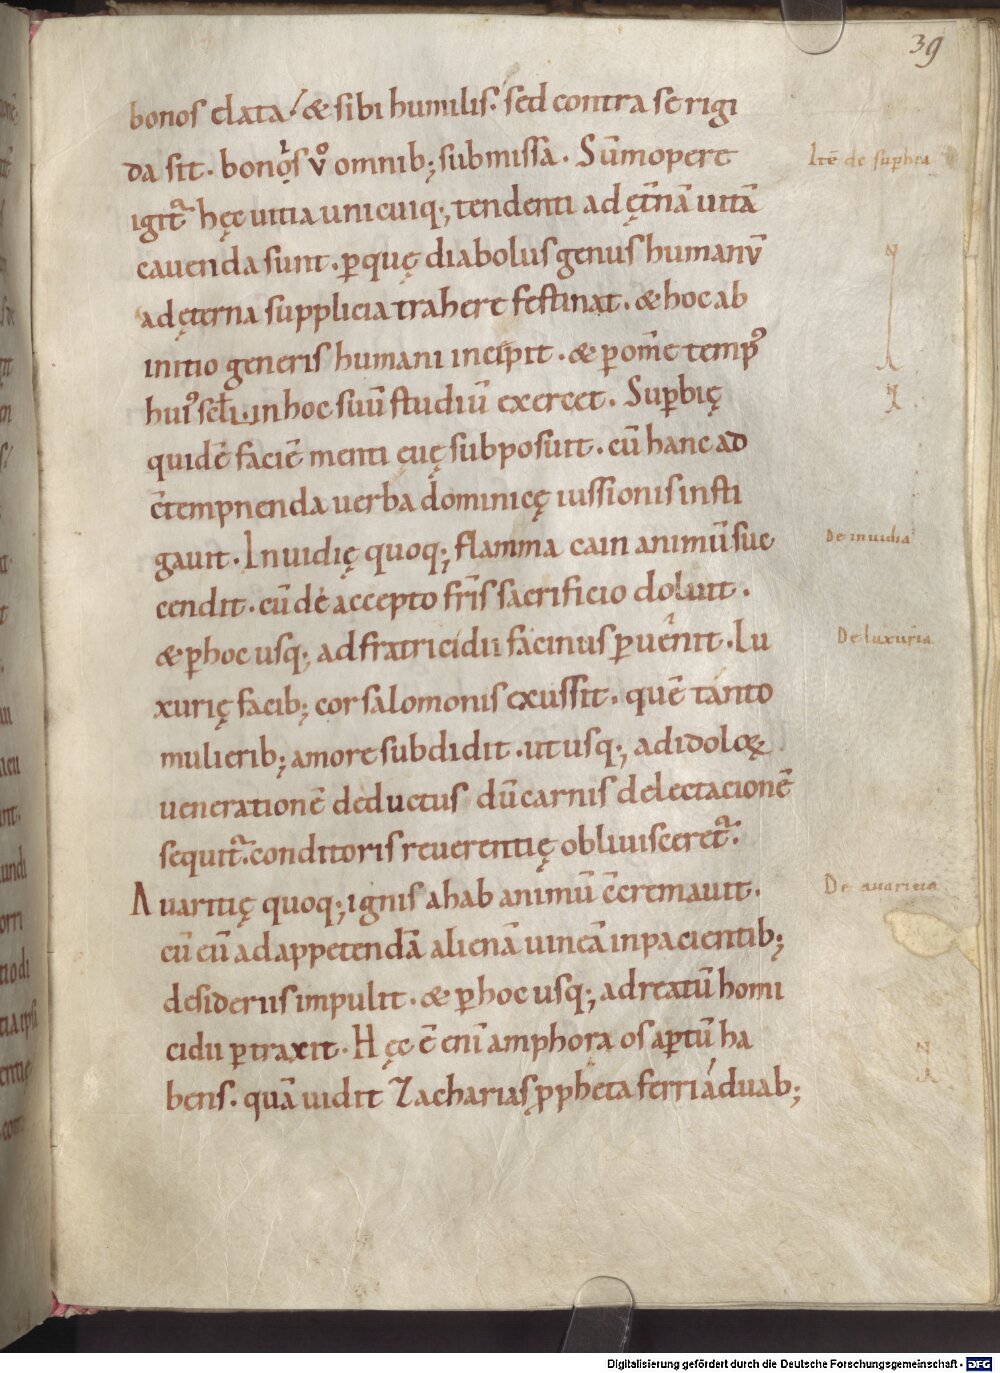 39
bonos elata! & sibi humilis! sed contra se rigi
da sit. bonoꝝ̣s v̊ omnib; submissa. Sūmopere
Itē de sup̄bia
igit᷑ hęc uitia unicuiq; tendenti ad ęt̄nā uitā
cauenda sunt. ꝑ quę diabolus genus humanū
ad ęterna supplicia trahere festinat. & hoc ab
initio generis humani incipit. & ꝑ om̄e temp᾿
hui᾿ sc̄li. in hoc suū studiū exercet. Suꝑbię
quidē faciē menti euę subposuit. cū hanc ad
c̄tempnenda uerba dominicę iussionis insti
gauit. Inuidię quoq; flamma cain animū suc
De inuidia
cendit. cū de accepto fr̄is sacrificio doluit.
& ꝑ hoc usq; ad fratricidii facinus ꝑuenit. Lu
De luxuria
xurię facib; cor salomonis exussit. quē tanto
mulierib; amore subdidit. ut usq; ad idoloꝝ
uenerationē deductus dū carnis delectacionē
sequit᷑. conditoris reuerentię obliuisceret᷑.
Auaritię quoq; ignis ahab animū c̄cremauit.
De auaricia
cū eū ad appetendā alienā uineā inpacientib;
desideriis impulit. & ꝑ hoc usq; ad reatū homi
cidii ꝑtraxit. Hęc ē eni amphora os aꝑtū ha
bens. quā uidit Zacharias ꝓpheta ferri a duab;
Digitalisierung gefördert durch die Deutsche Forschungsgemeinschaft - DFG